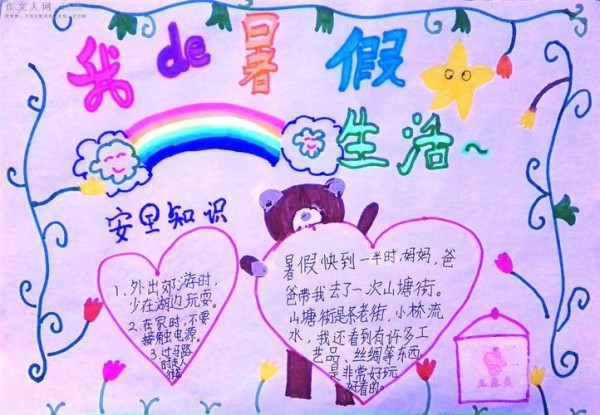 作文人网
我de暑假
生活~
安里知识
1. 外出郊游时,
少在湖边玩耍。
2. 在家时,不要
接触电源。
3. 过马路
时
暑假快到一半时,妈妈,爸
爸带我去了一次山塘街。
山塘街是条老街,小桥流
水,我还看到有许多工
艺品、丝绸等东西,
是非常好玩
好看的。